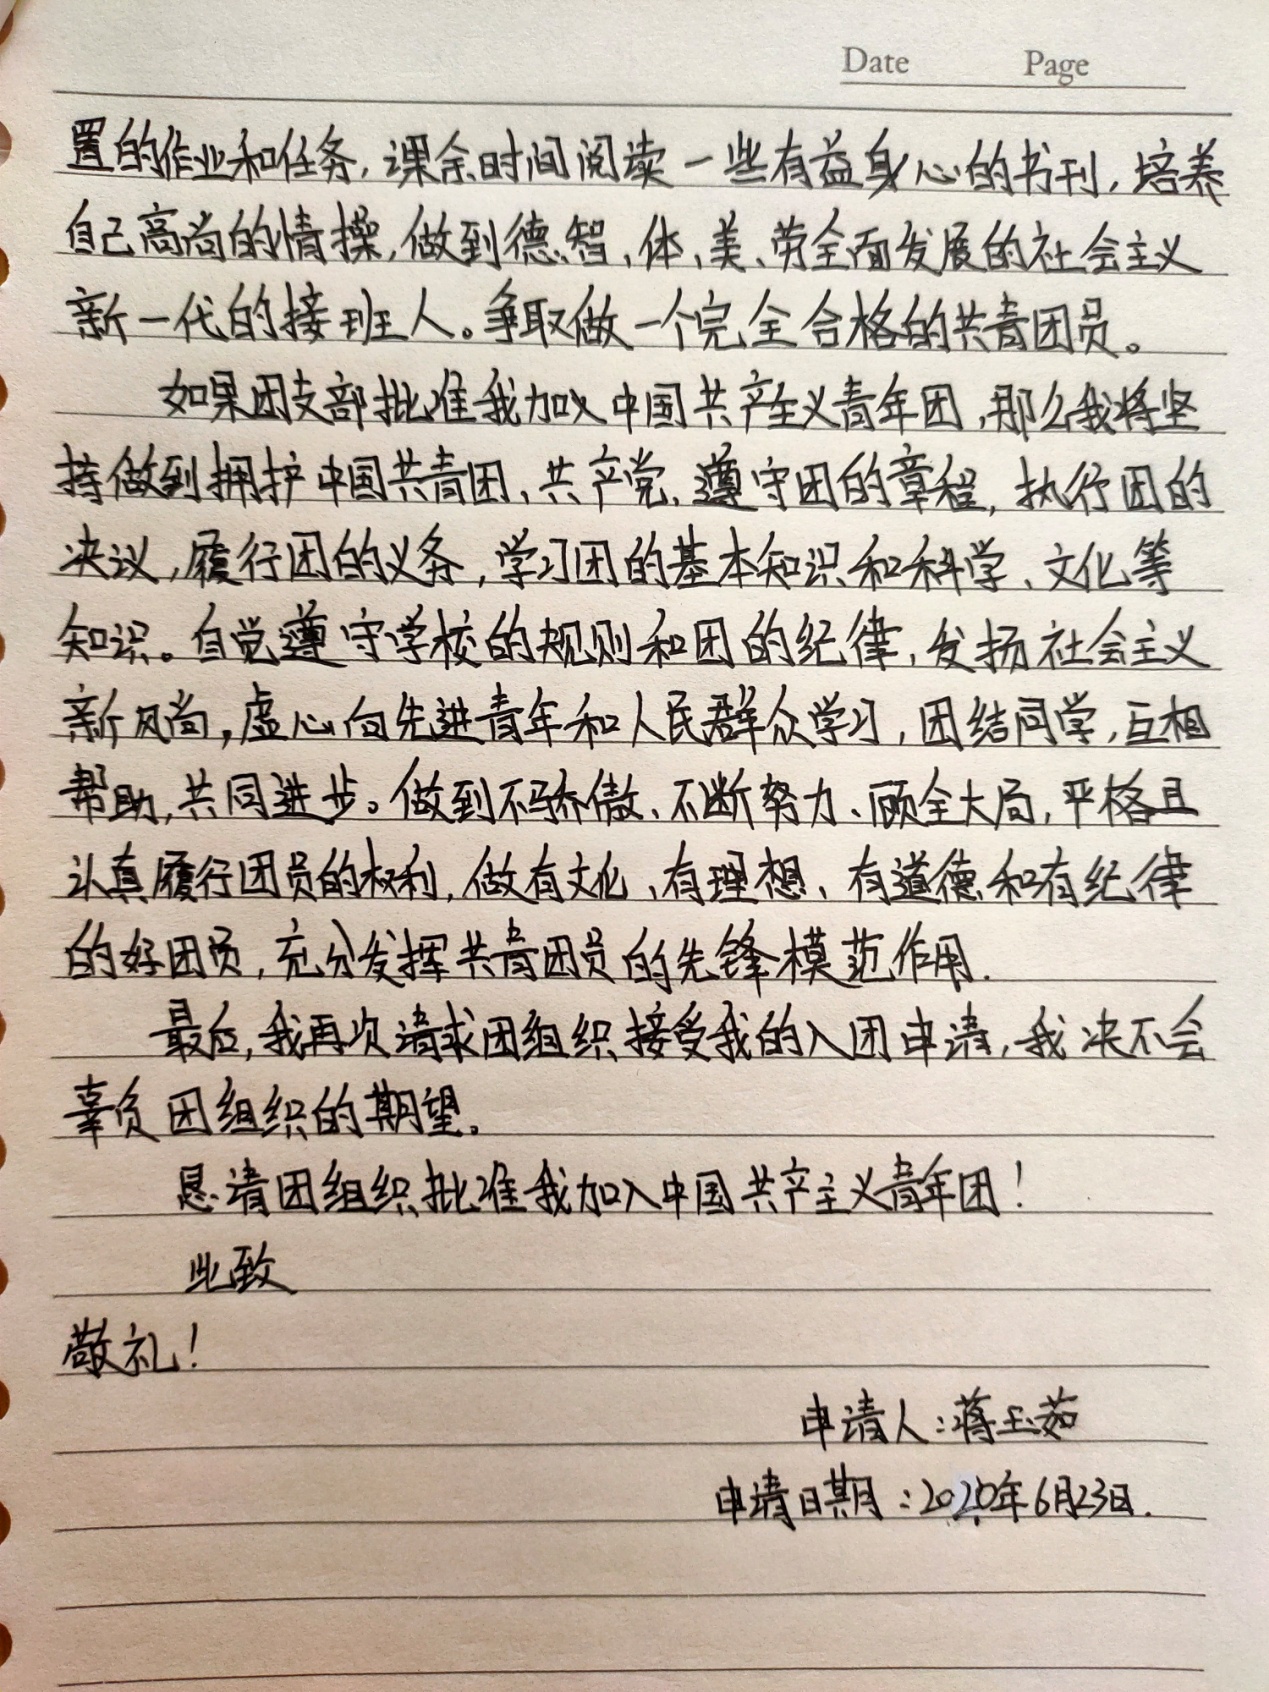 Date Page
置的作业和任务，课余时间阅读一些有益身心的书刊，培养
自己高尚的情操，做到德、智、体、美、劳全面发展的社会主义
新一代的接班人。争取做一个完全合格的共青团员。
如果团支部批准我加入中国共产主义青年团，那么我将坚
持做到拥护中国共青团、共产党，遵守团的章程，执行团的
决议，履行团的义务，学习团的基本知识和科学、文化等
知识。自觉遵守学校的规则和团的纪律，发扬社会主义
新风尚，虚心向先进青年和人民群众学习，团结同学，互相
帮助，共同进步。做到不骄傲、不断努力、顾全大局，严格且
认真履行团员的权利，做有文化、有理想、有道德和有纪律
的好团员，充分发挥共青团员的先锋模范作用.
最后，我再次请求团组织接受我的入团申请，我决不会
辜负团组织的期望。
恳请团组织批准我加入中国共产主义青年团！
此致
敬礼！
申请人：蒋玉茹
申请日期：2020年6月23日.